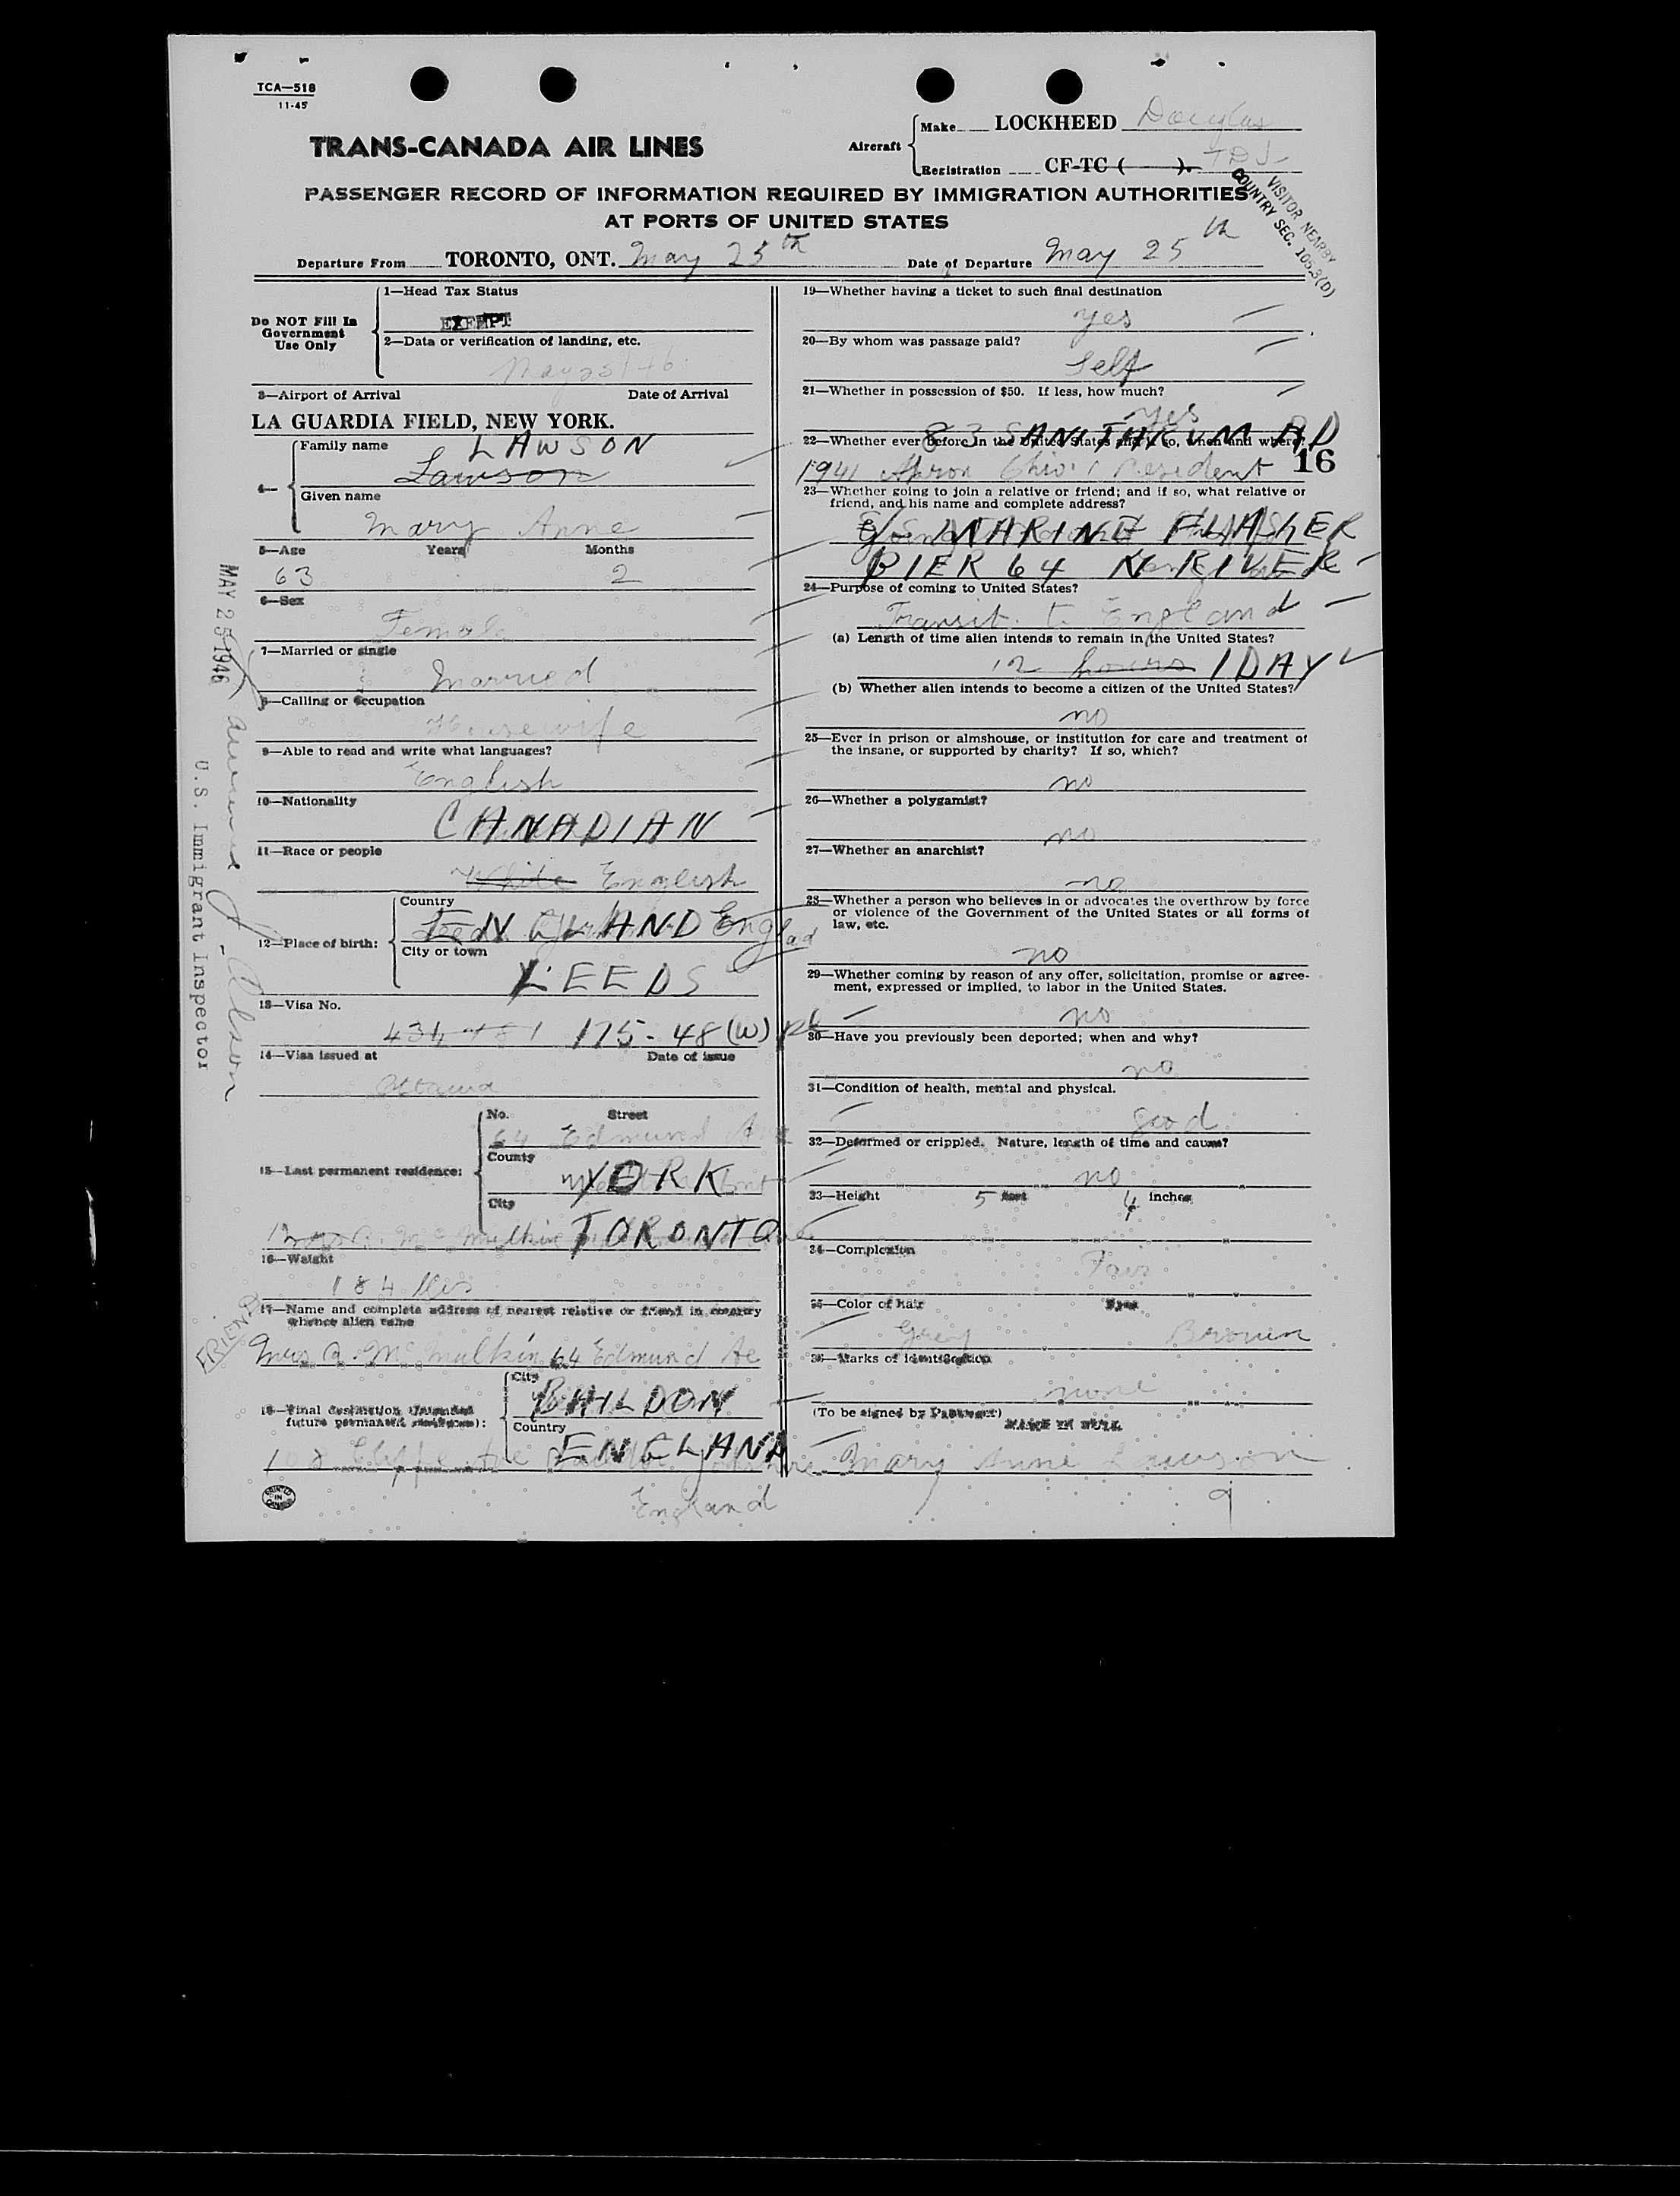 TCA—518
11-45
TRANS-CANADA AIR LINES
Aircraft
Make LOCKHEED Douglas
Registration CF-TC ( ). TDJ
PASSENGER RECORD OF INFORMATION REQUIRED BY IMMIGRATION AUTHORITIES
AT PORTS OF UNITED STATES
VISITOR NEARBY
COUNTRY SEC.
Departure From TORONTO, ONT. May 25th Date of Departure May 25th
Do NOT Fill In
Government
Use Only
1—Head Tax Status
EXEMPT
2—Data or verification of landing, etc.
May 25/46
3—Airport of Arrival Date of Arrival
LA GUARDIA FIELD, NEW YORK.
4—
Family name LAWSON
Lawson
Given name
Mary Anne
5—Age Years Months
63 2
6—Sex
Female
7—Married or single
Married
8—Calling or occupation
Housewife
9—Able to read and write what languages?
English
10—Nationality
CANADIAN
11—Race or people
White English
12—Place of birth:
Country
ENGLAND England
City or town
LEEDS
13—Visa No.
175-48 (W)
14—Visa issued at Date of issue
Ottawa
15—Last permanent residence:
No. Street
64 Edmund Ave
County
YORK
City
TORONTO
16—Weight
184 lbs
17—Name and complete address of nearest relative or friend in country
whence alien came
FRIEND
Mrs A. McMulkin 64 Edmund Ave
18—Final destination (Intended
future permanent residence):
City
BAILDON
Country
ENGLAND
England
PRINTED IN CANADA
MAY 25 1946
U.S. Immigrant Inspector
19—Whether having a ticket to such final destination
yes
20—By whom was passage paid?
Self
21—Whether in possession of $50. If less, how much?
yes
83 SANITARIUM RD
22—Whether ever before in the United States and if so, when and where?
1941 Akron Ohio Resident 16
23—Whether going to join a relative or friend; and if so, what relative or
friend, and his name and complete address?
MARINE FLASHER
PIER 64 N RIVER
24—Purpose of coming to United States?
Transit to England
(a) Length of time alien intends to remain in the United States?
12 hours 1 DAY
(b) Whether alien intends to become a citizen of the United States?
no
25—Ever in prison or almshouse, or institution for care and treatment of
the insane, or supported by charity? If so, which?
no
26—Whether a polygamist?
no
27—Whether an anarchist?
no
28—Whether a person who believes in or advocates the overthrow by force
or violence of the Government of the United States or all forms of
law, etc.
no
29—Whether coming by reason of any offer, solicitation, promise or agree-
ment, expressed or implied, to labor in the United States.
no
30—Have you previously been deported; when and why?
no
31—Condition of health, mental and physical.
good
32—Deformed or crippled. Nature, length of time and cause?
no
33—Height 5 feet 4 inches
34—Complexion
Fair
35—Color of hair Eyes
Grey Brown
36—Marks of identification
none
(To be signed by Passenger)
NAME IN FULL
Mary Anne Lawson
9